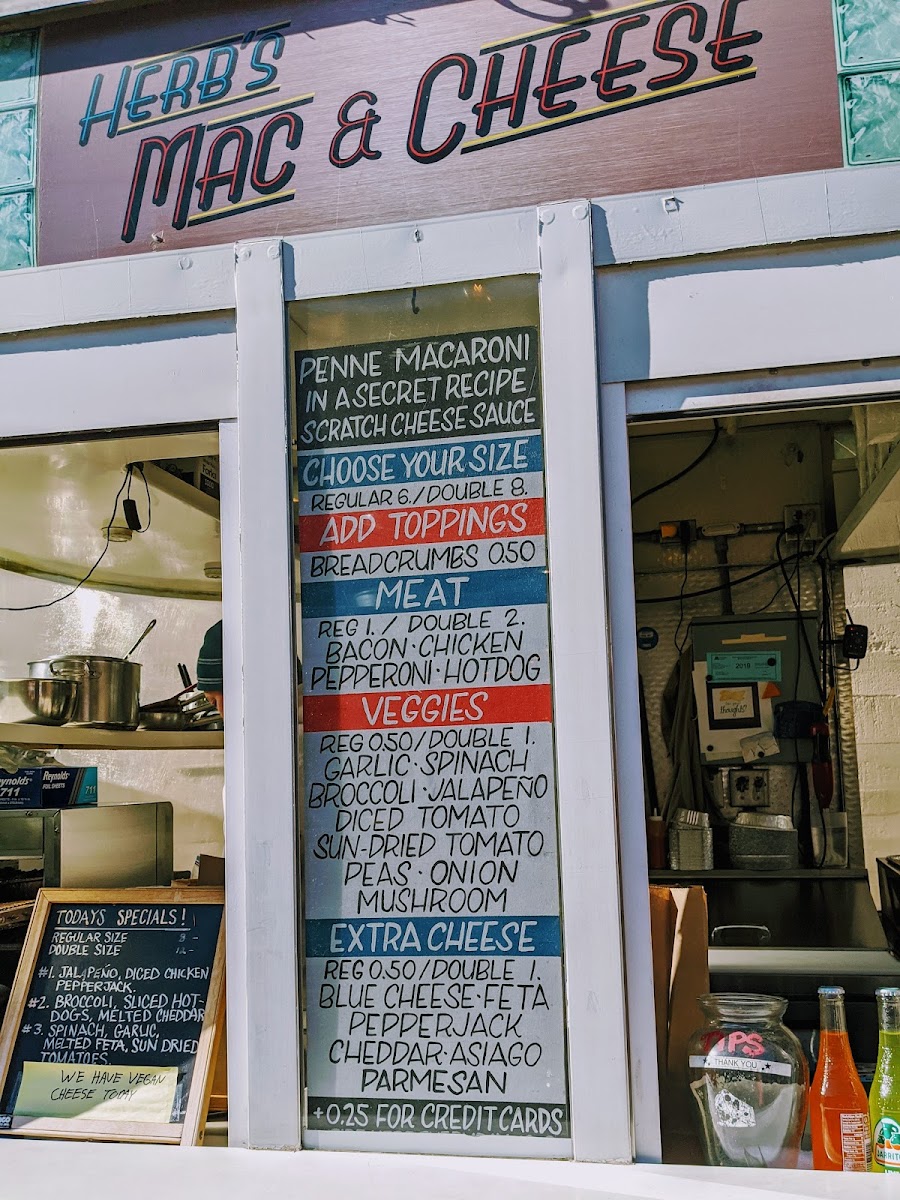 HERB'S
MAC & CHEESE
PENNE MACARONI
IN A SECRET RECIPE
SCRATCH CHEESE SAUCE
CHOOSE YOUR SIZE
REGULAR 6./DOUBLE 8.
ADD TOPPINGS
BREADCRUMBS 0.50
MEAT
REG 1./ DOUBLE 2.
BACON·CHICKEN
PEPPERONI·HOTDOG
VEGGIES
REG 0.50/DOUBLE 1.
GARLIC·SPINACH
BROCCOLI·JALAPEÑO
DICED TOMATO
SUN-DRIED TOMATO
PEAS·ONION
MUSHROOM
EXTRA CHEESE
REG 0.50/DOUBLE 1.
BLUE CHEESE·FETA
PEPPERJACK
CHEDDAR·ASIAGO
PARMESAN
+0.25 FOR CREDIT CARDS
TODAYS SPECIALS!
REGULAR SIZE
DOUBLE SIZE
#1. JALAPEÑO, DICED CHICKEN
PEPPERJACK.
#2. BROCCOLI, SLICED HOT-
DOGS, MELTED CHEDDAR
#3. SPINACH, GARLIC,
MELTED FETA, SUN DRIED
TOMATOES
WE HAVE VEGAN
CHEESE TODAY
Reynolds
711
FOIL SHEETS
2019
thoughts?
TIPS
THANK YOU